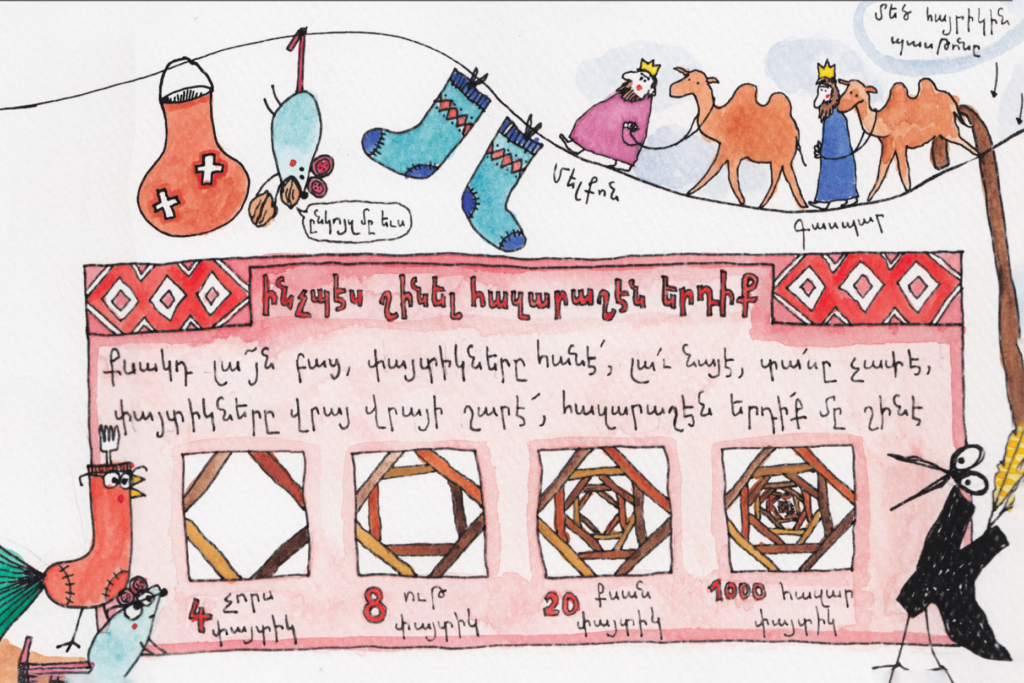 մեծ հայրիկին
ընկոյզ մը եւս
Մելքոն
Գասպար
ինչպէս շինել հազարաշէն երդիք
քսակդ լա՜յն բաց, փայտիկները հանէ՛, լա՛ւ նայէ, տա՛սը չափէ,
փայտիկները վրայ վրայի շարէ՛, հազարաշէն երդի՛ք մը շինէ
4 չորս
փայտիկ
8 ութ
փայտիկ
20 քսան
փայտիկ
1000 հազար
փայտիկ